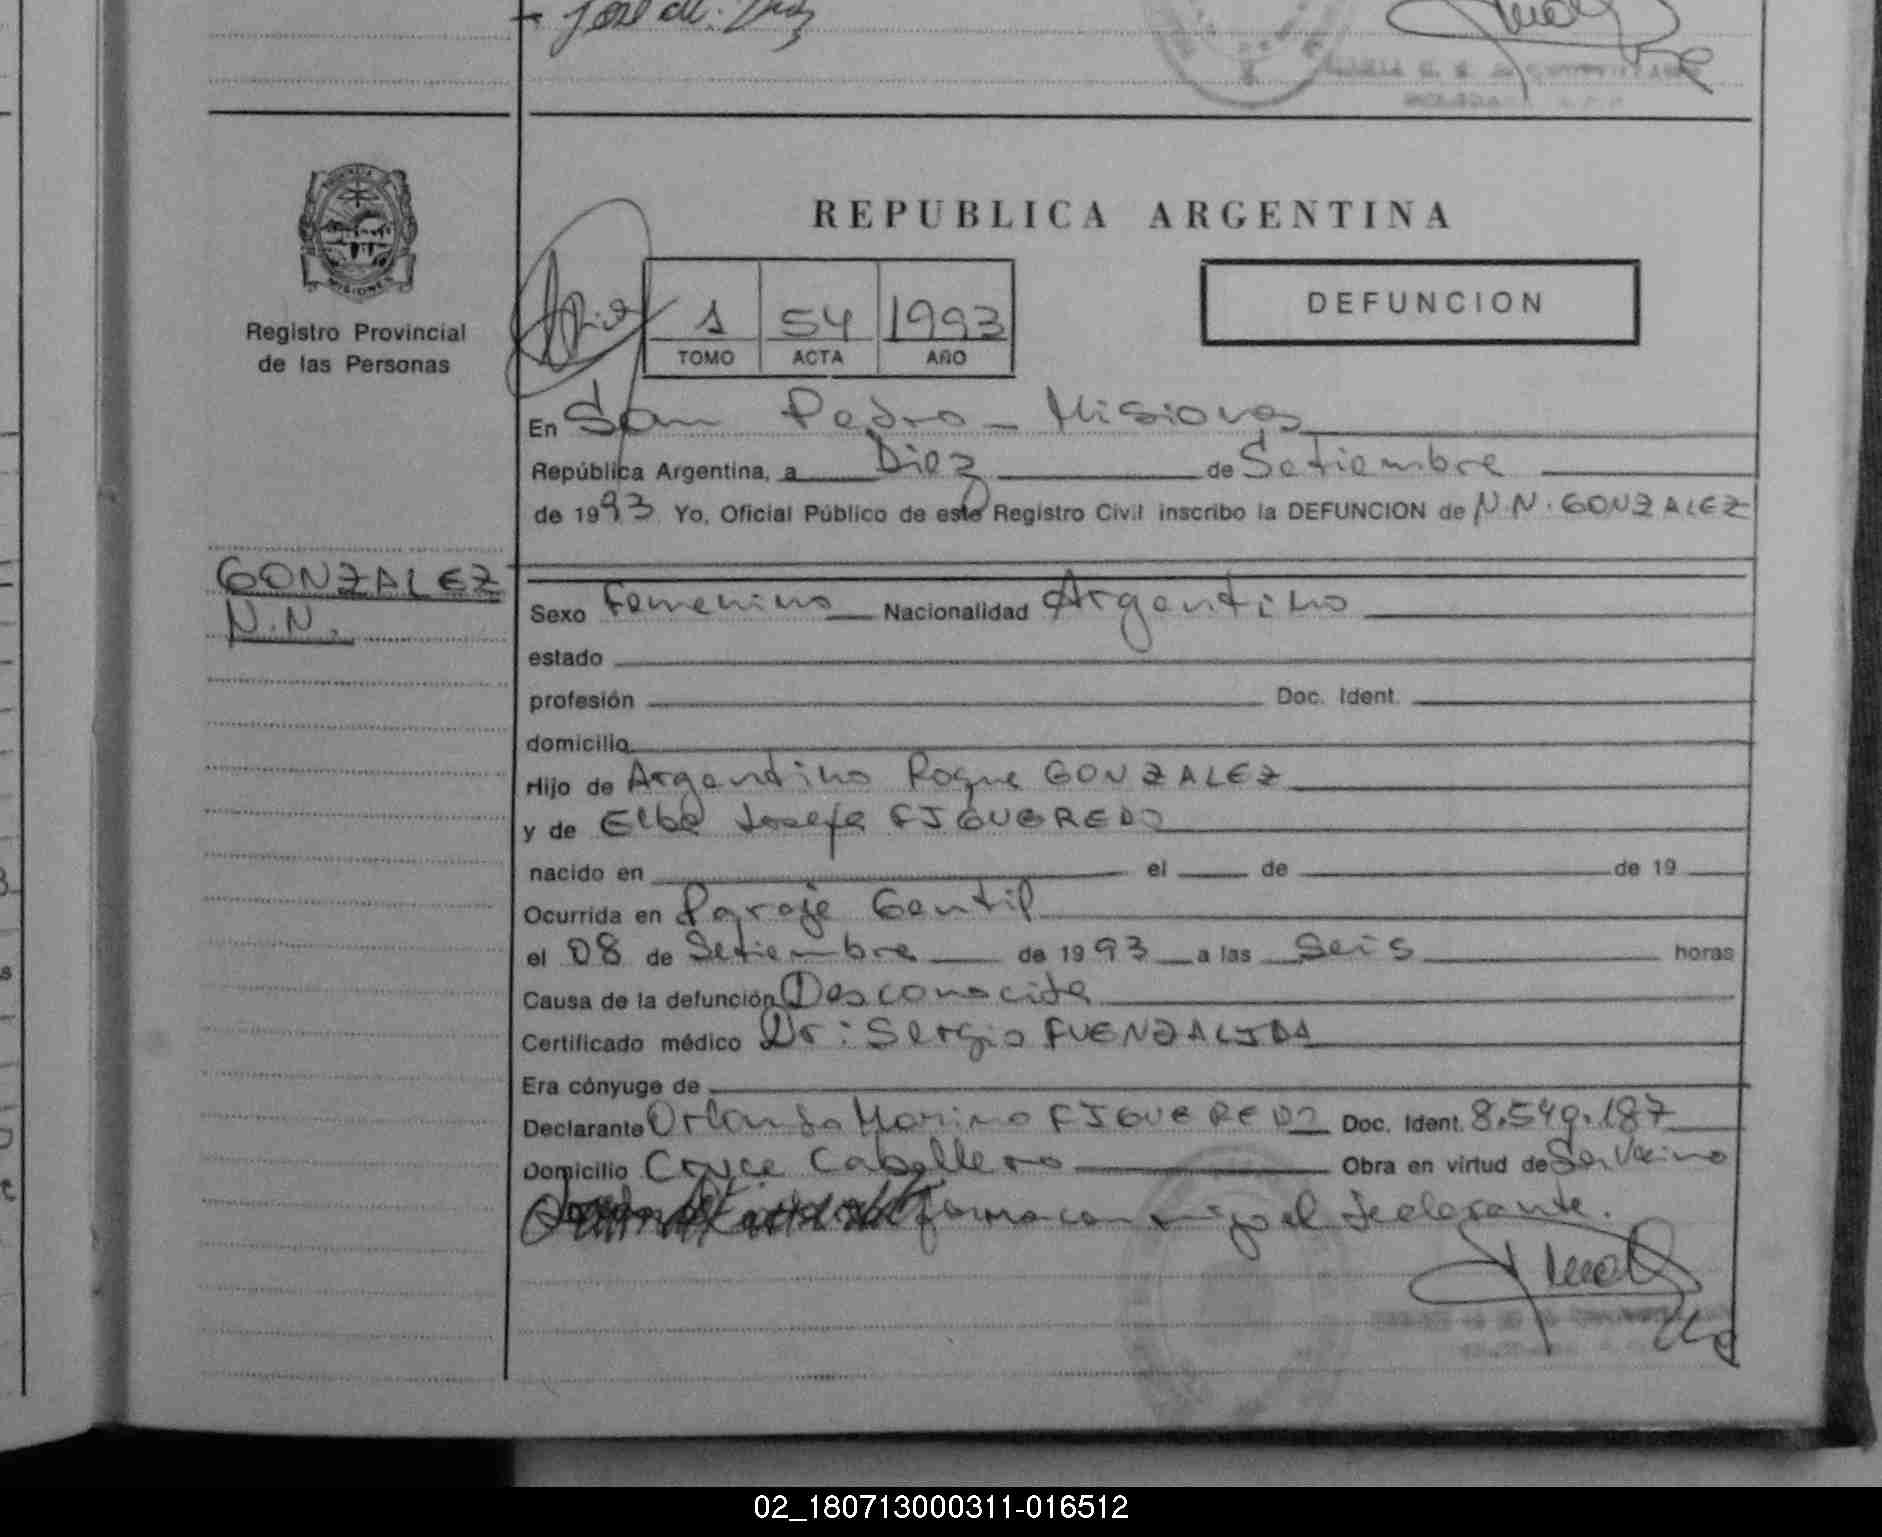 José
REPUBLICA ARGENTINA
PROVINCIA DE
MISIONES
Registro Provincial
de las Personas
1 54 1993
TOMO ACTA AÑO
DEFUNCION
En San Pedro - Misiones
República Argentina, a Diez de Setiembre
de 1993 Yo, Oficial Público de este Registro Civil inscribo la DEFUNCION de N.N. GONZALEZ
GONZALEZ
N.N.
Sexo Femenino Nacionalidad Argentino
estado
profesión Doc. Ident.
domicilio
Hijo de Argentino Roque GONZALEZ
y de Elba Josefa FIGUEREDO
nacido en el de de 19
Ocurrida en Paraje Gentil
el 08 de Setiembre de 1993 a las Seis horas
Causa de la defunción Desconocida
Certificado médico Dr: Sergio FUENZALIDA
Era cónyuge de
Declarante Orlando Marino FIGUEREDO Doc. Ident. 8.549.187
Domicilio Cruce Caballero Obra en virtud de
firma conmigo el declarante.
02_180713000311-016512